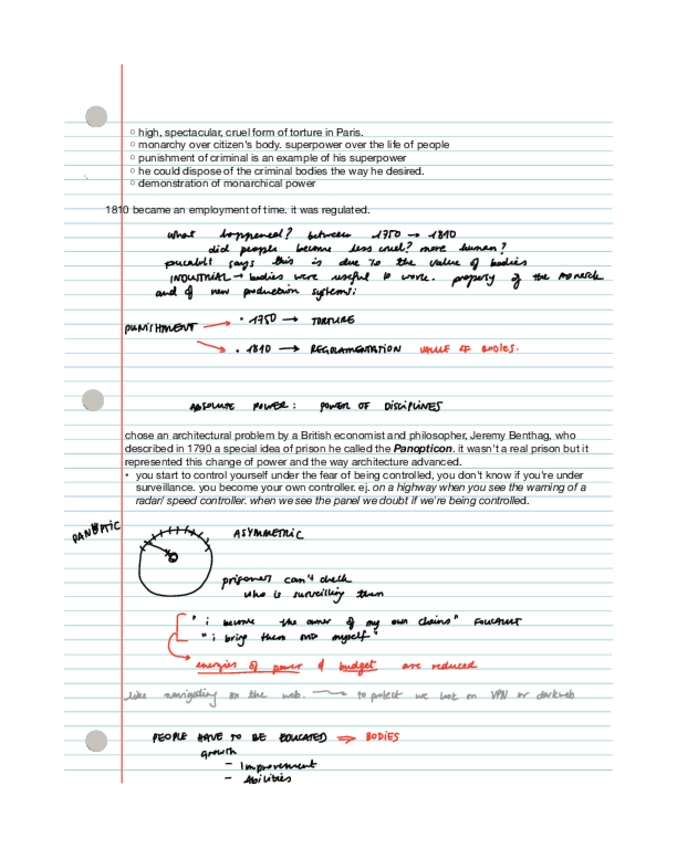 ○ high, spectacular, cruel form of torture in Paris.
○ monarchy over citizen's body. superpower over the life of people
○ punishment of criminal is an example of his superpower
○ he could dispose of the criminal bodies the way he desired.
○ demonstration of monarchical power
1810 became an employment of time. it was regulated.
what happened? between 1750 → 1810
did people become less cruel? more human?
says this is due to the value of bodies
INDUSTRIAL → bodies were useful to work. property of the monarch
and of new production systems:
PUNISHMENT → • 1750 → TORTURE
→ • 1810 → REGULAMENTATION VALUE OF BODIES.
ABSOLUTE POWER: POWER OF DISCIPLINES
chose an architectural problem by a British economist and philosopher, Jeremy Benthag, who
described in 1790 a special idea of prison he called the Panopticon. it wasn't a real prison but it
represented this change of power and the way architecture advanced.
• you start to control yourself under the fear of being controlled, you don't know if you're under
surveillance. you become your own controller. ej. on a highway when you see the warning of a
radar/ speed controller. when we see the panel we doubt if we're being controlled.
PANOPTIC
ASYMMETRIC
prisoners can't check
who is surveilling them
"i become the owner of my own chains" FOUCAULT
"i bring them into myself"
energies of power & budget are reduced
like navigating on the web. → to protect we look on VPN or darkweb
PEOPLE HAVE TO BE EDUCATED ⇒ BODIES
growth
– Improvement
– Abilities